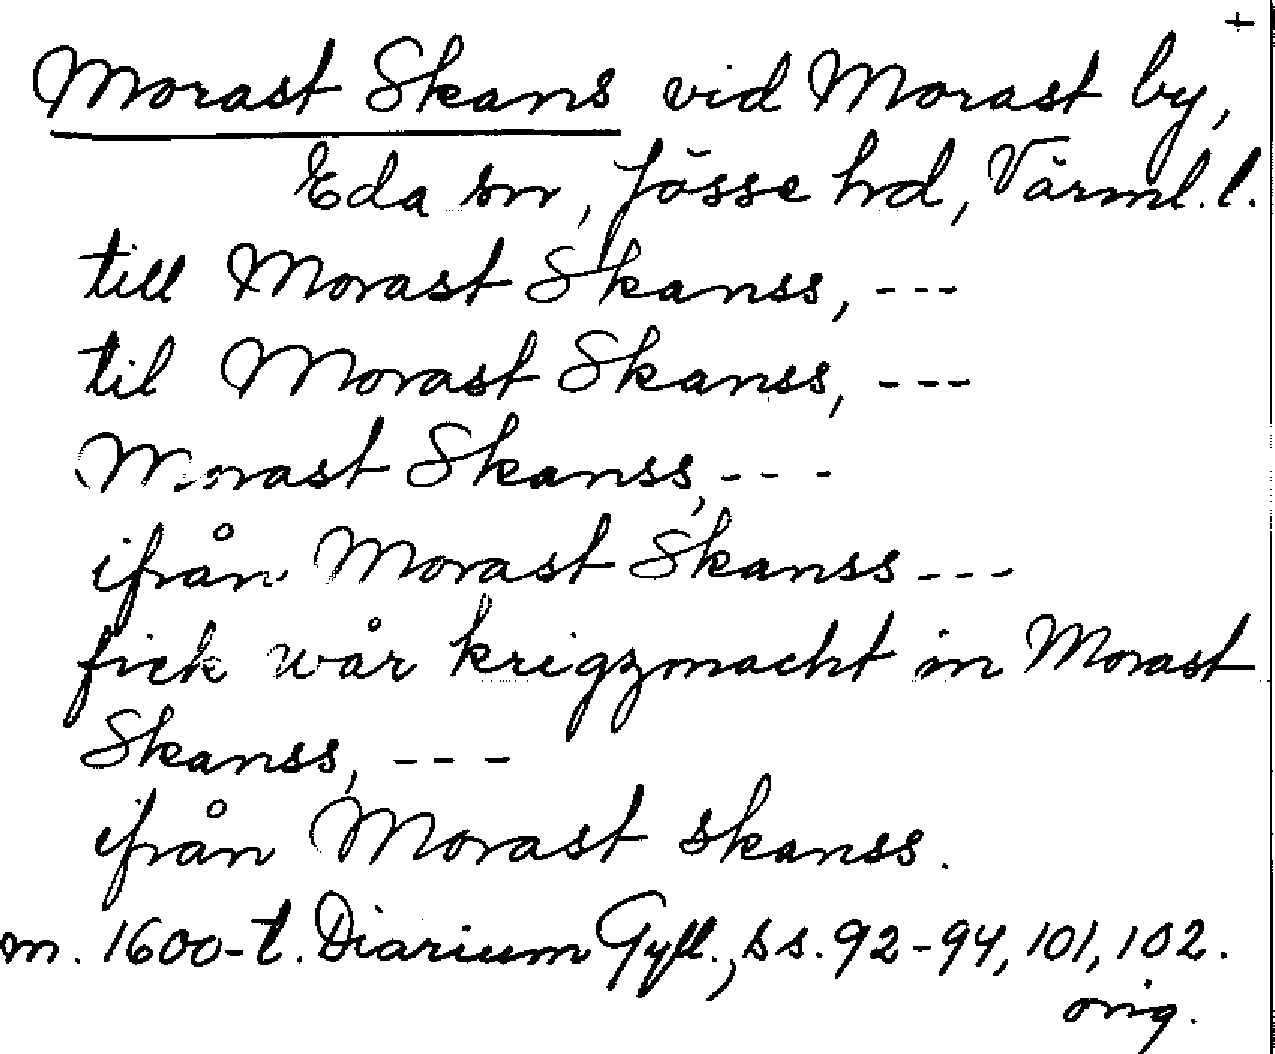 +
Morast Skans vid Morast by,
Eda sn, Jösse hd, Värml. l.
till Morast Skanss, ---
til Morast Skanss, ---
Morast Skanss, ---
ifrån Morast Skanss ---
fick wår krigzmacht in Morast
Skanss, ---
ifrån Morast skanss.
m. 1600-t. Diarium Gyll., ss. 92-94, 101, 102.
orig.